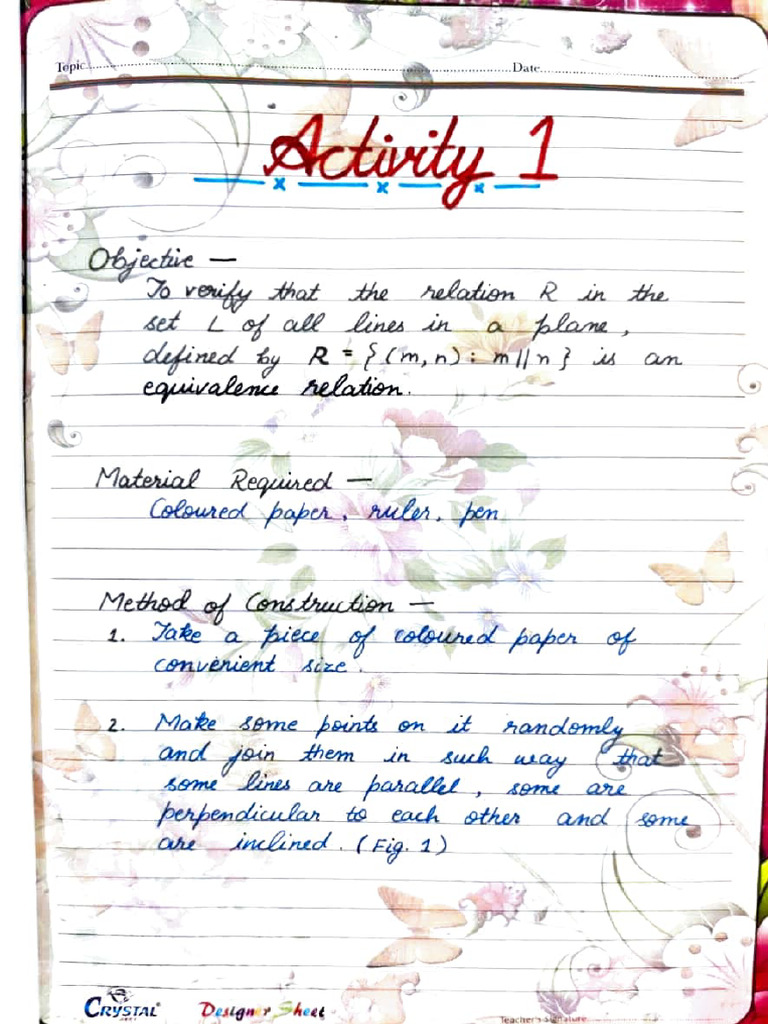 Topic Date
Activity 1
Objective —
To verify that the relation R in the
set L of all lines in a plane,
defined by R = {(m, n) : m || n } is an
equivalence relation.
Material Required —
Coloured paper, ruler, pen
Method of Construction —
1. Take a piece of coloured paper of
convenient size.
2. Make some points on it randomly
and join them in such way that
some lines are parallel, some are
perpendicular to each other and some
are inclined. (Fig. 1)
CRYSTAL Designer Sheet Teacher's Signature